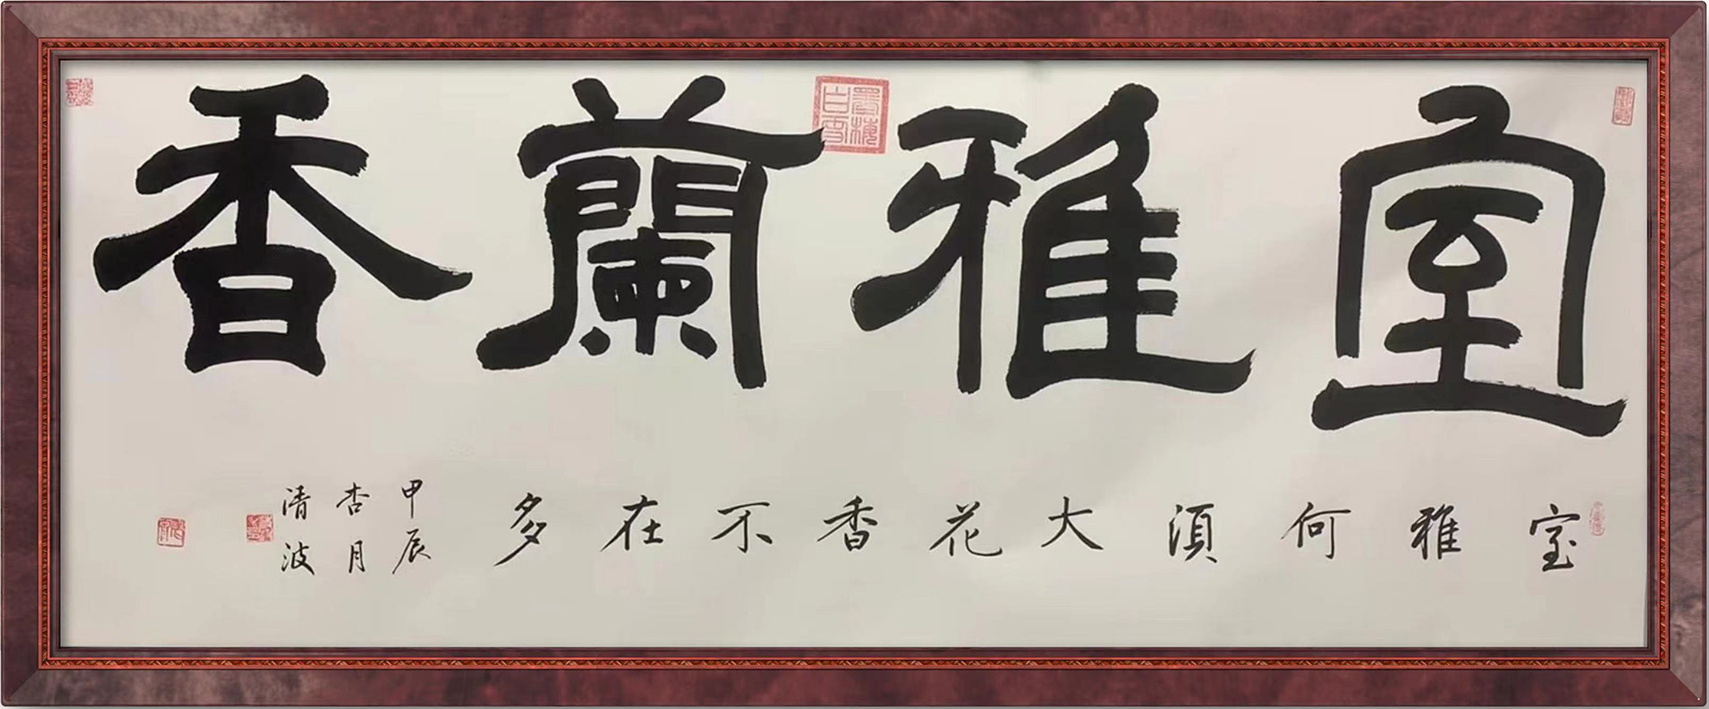 室雅蘭香
室雅何須大花香不在多
甲辰
杏月
清波